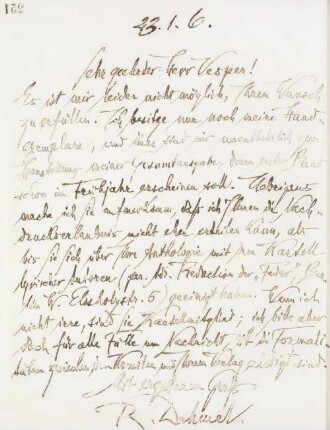 23.1.6.
Sehr geehrter Herr Vesper!
Es ist mir leider nicht möglich, Ihren Wunsch
zu erfüllen. Ich besitze nur noch meine Hand-
exemplare, und diese sind mir unentbehrlich zur
Herstellung meiner Gesamtausgabe, deren erster Band
schon im Frühjahr erscheinen soll. Uebrigens
mache ich Sie aufmerksam, daß ich Ihnen die Nach-
druckserlaubnis nicht eher erteilen kann, als
bis Sie sich über Ihre Anthologie mit dem Kartell
lyrischer Autoren (per Adr. Redaction der „Feder“, Ber-
lin W. Elsholzstr. 5) geeinigt haben. Wenn ich
nicht irre, sind Sie Kartellmitglied; ich bitte aber
doch für alle Fälle um Nachricht, ob die Formali-
täten zwischen dem Komitee und Ihrem Verlag erledigt sind.
Mit ergebenem Gruß
R. Dehmel.